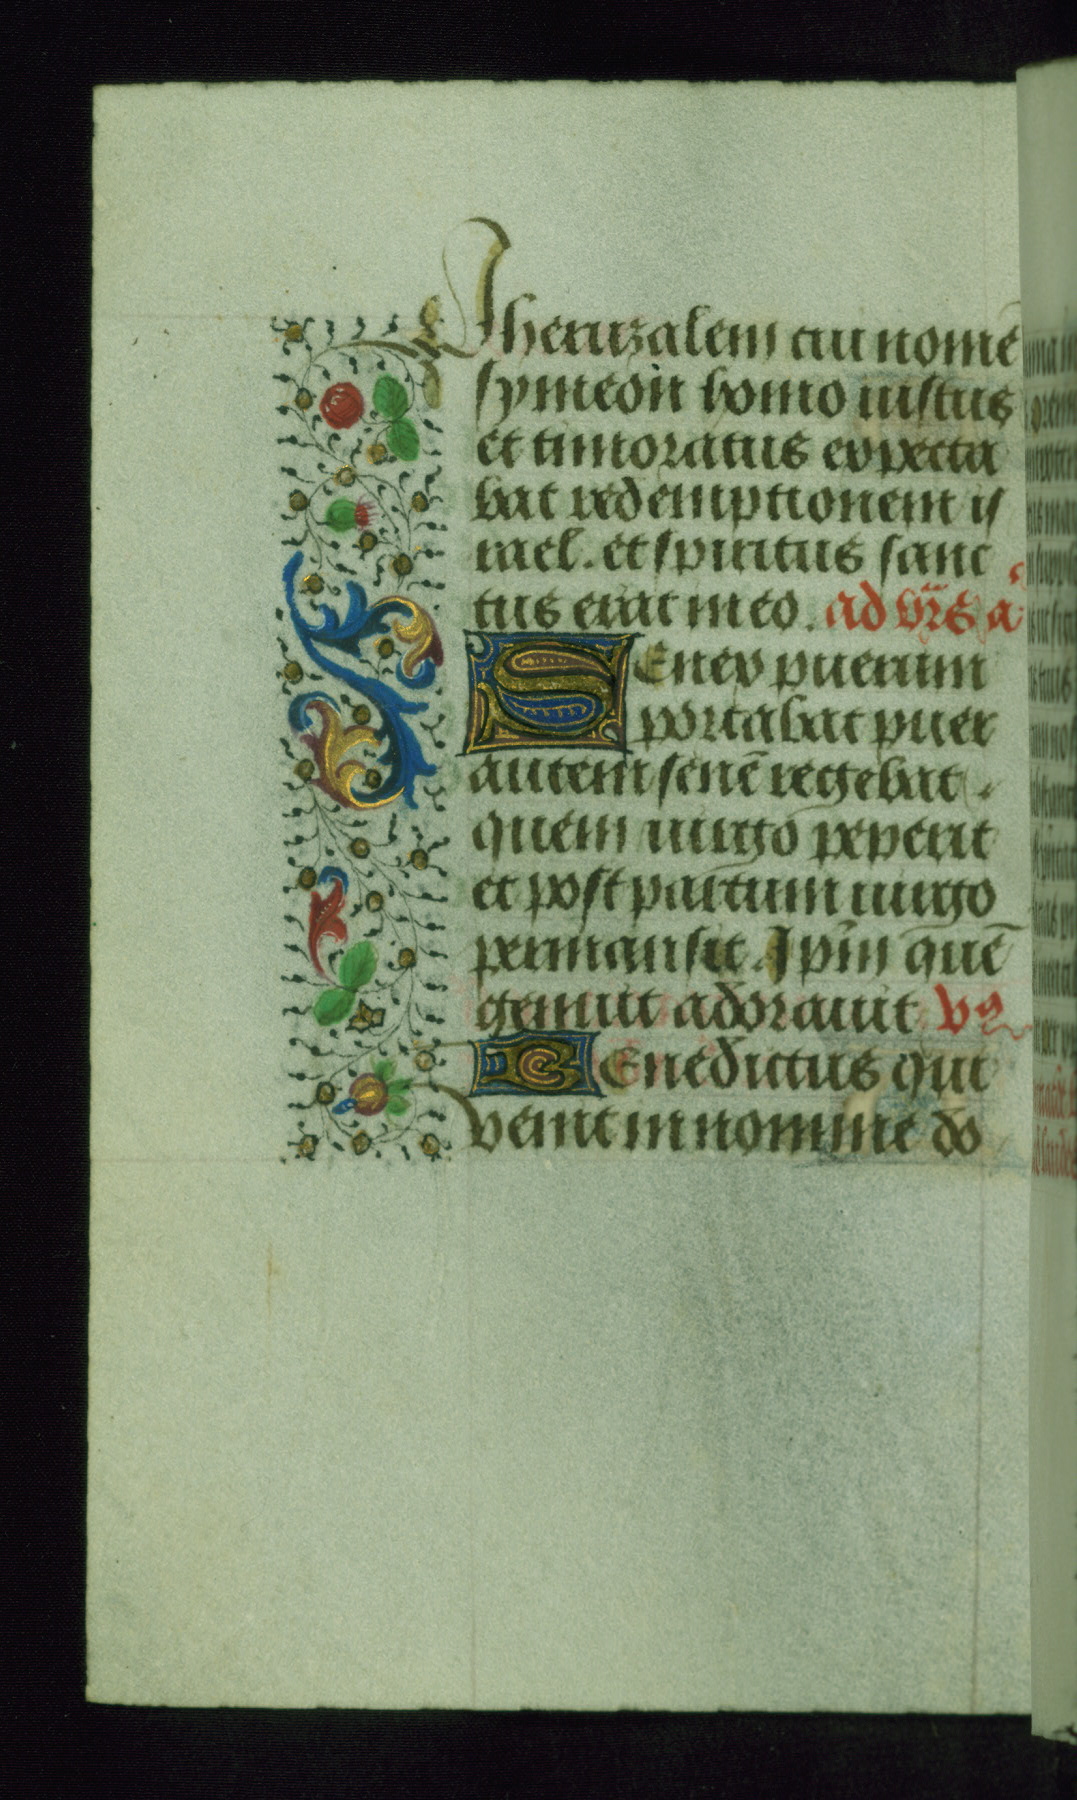 Jheruzalem cui nomē
symeon homo iustus
et timoratus expecta
bat redemptionem is
rael. et spiritus sanc
tus erat in eo. ad vr̄s a
Senex puerum
portabat puer
autem senē regebat
quem uirgo peperit
et post partum uirgo
permansit. Ipm̄ quē
genuit adorauit vs
Benedictus qui
venit in nomine do